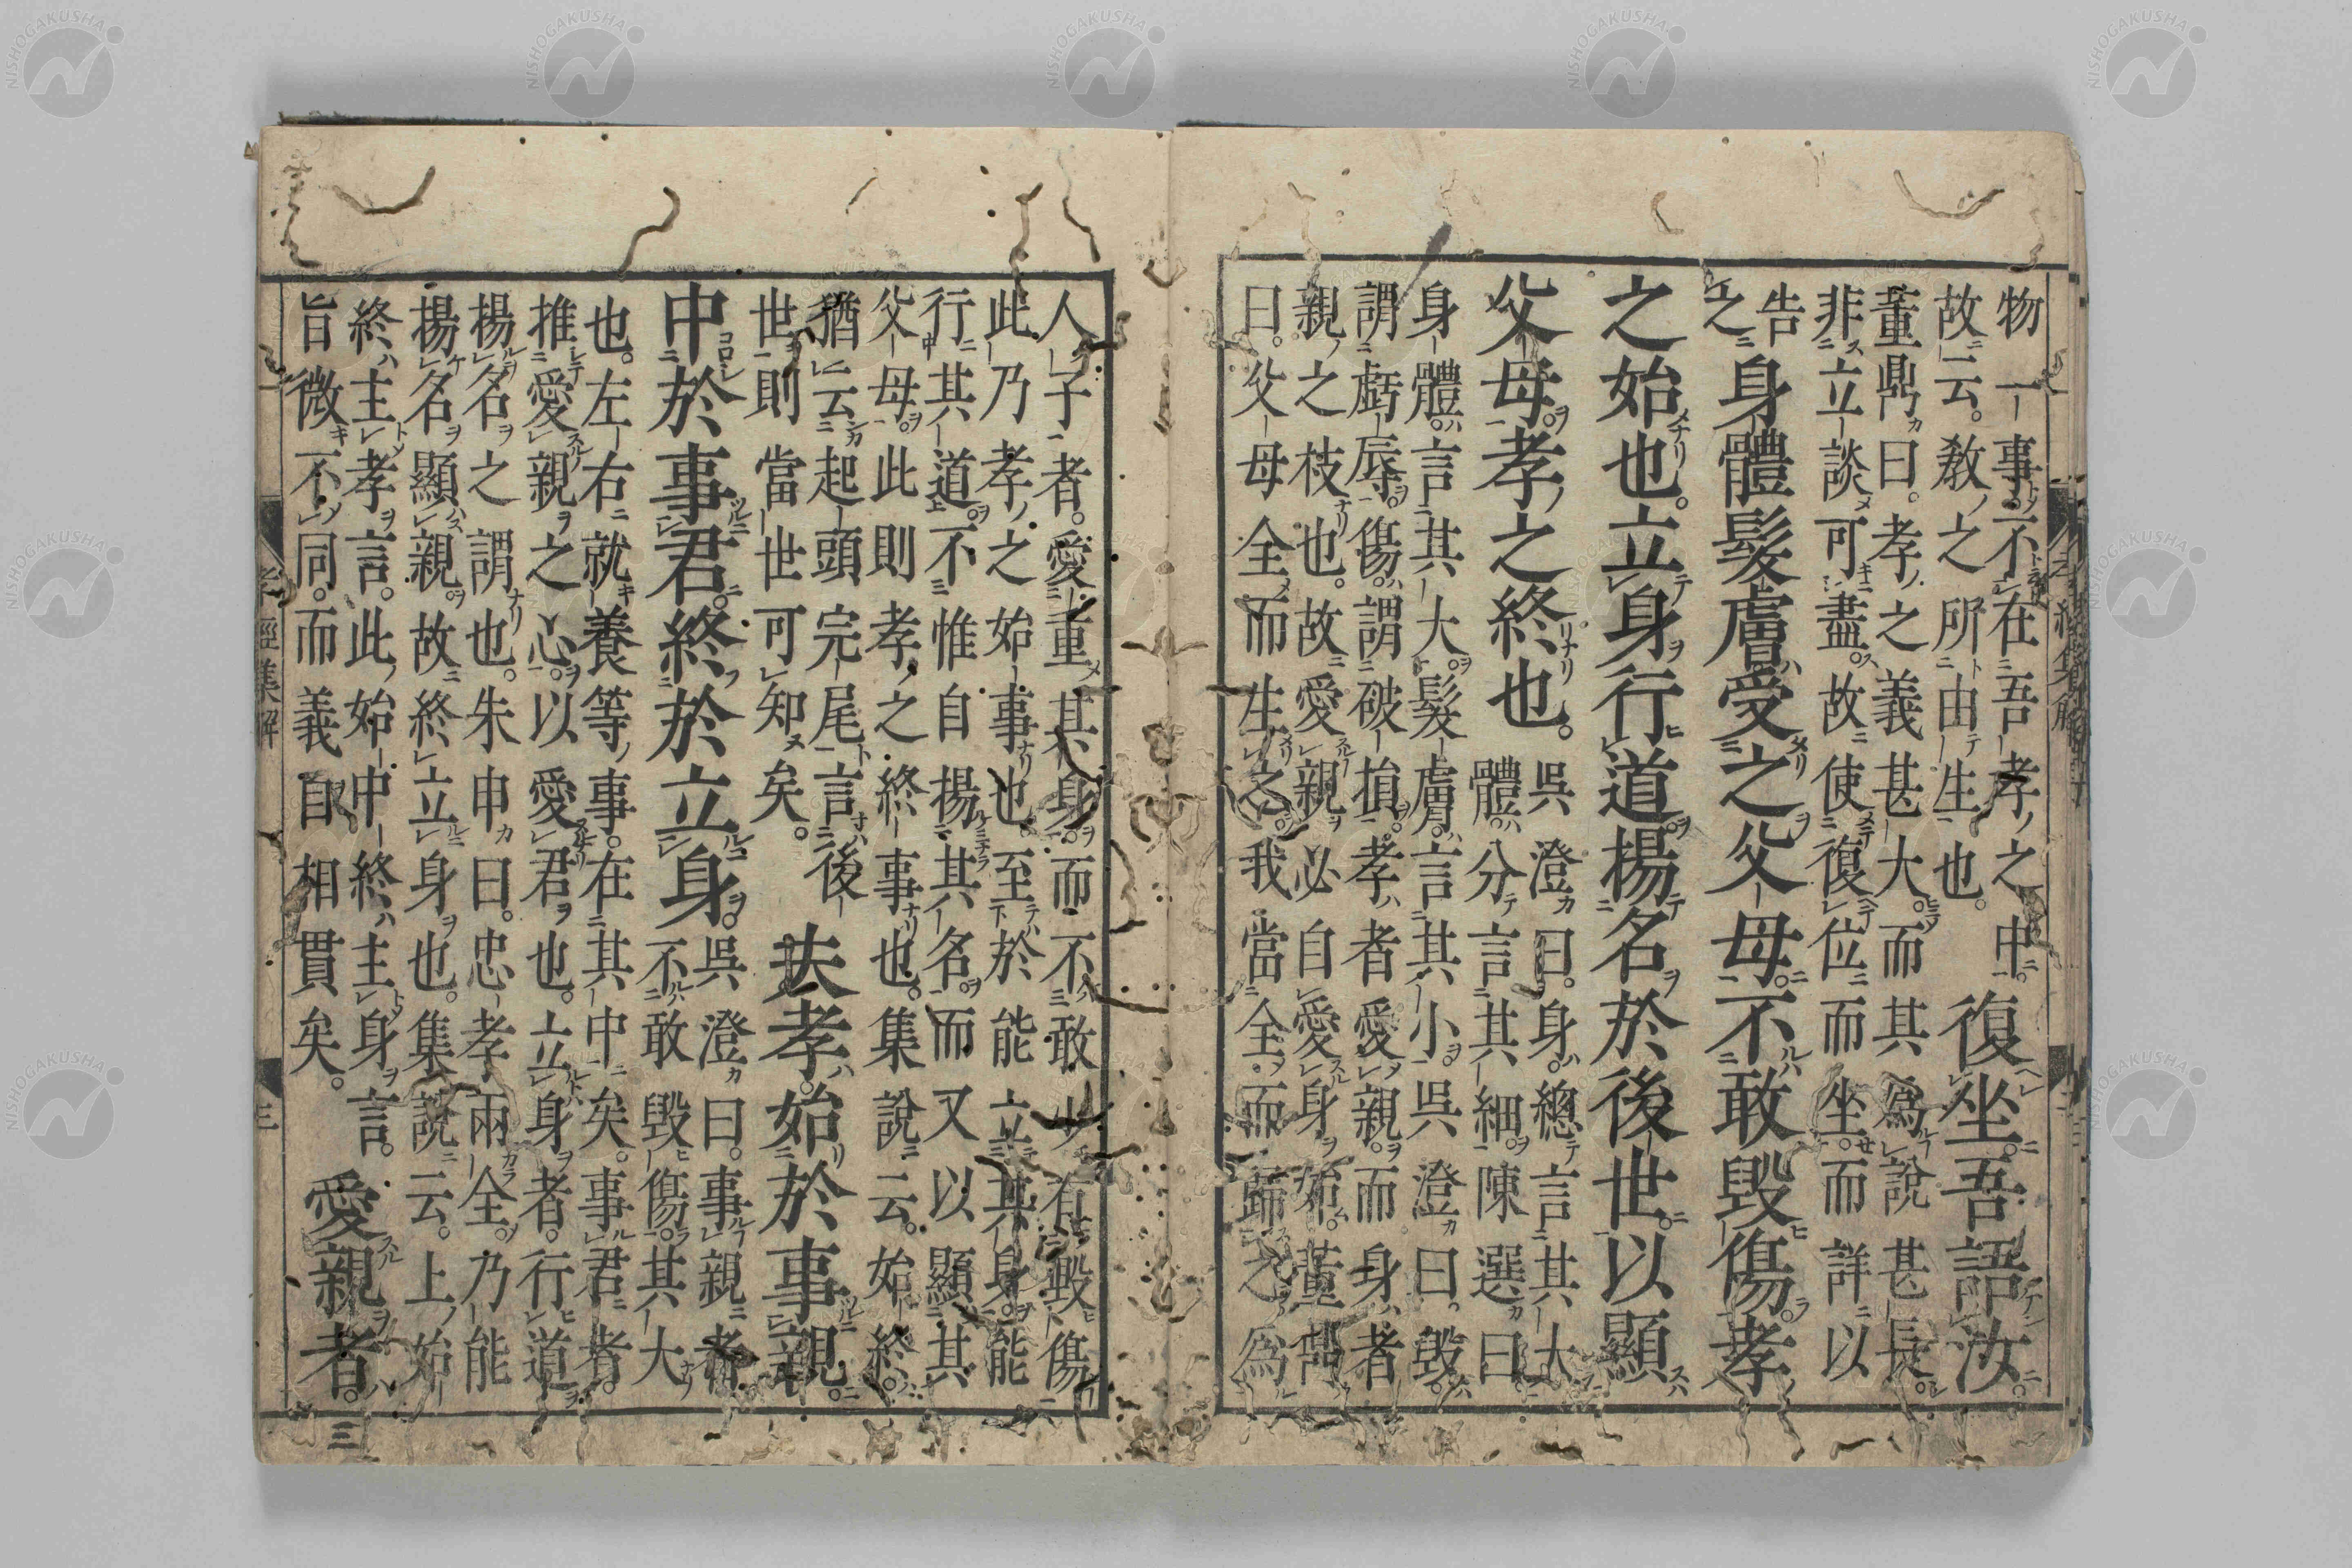 物一事。不在吾孝之中。
故云。教之所由生也。
復坐。吾語汝。
董鼎曰。孝之義甚大。而其為說甚長。
非立談可盡。故使復位而坐。而詳以
告
之
身體髮膚。受之父母。不敢毀傷。孝
之始也。立身行道。揚名於後世。以顯
父母。孝之終也。
吳澄曰。身。總言其大
體。分言其細。陳選曰
身體。言其大。髮膚。言其小。吳澄曰。毀。
謂虧辱。傷。謂破損。孝者愛親。而身者
親之枝也。故愛親必自愛身始。董鼎
曰。父母全而生之。我當全而歸之。為
人子者。愛重其身。而不敢少有毀傷
此乃孝之始事也。至於能立其身。能
行其道。不惟自揚其名。而又以顯其
父母。此則孝之終事也。集說云。始終。
猶云起頭完尾言後
世則當世可知矣。
夫孝。始於事親。
中於事君。終於立身。
吳澄曰。事親者
不敢毀傷。其大
也。左右就養等事。在其中矣。事君者。
推愛親之心。以愛君也。立身者。行道
揚名之謂也。朱申曰。忠孝兩全。乃能
揚名顯親。故終立身也。集說云。上始
終主孝言。此始中終主身言。
旨微不同。而義自相貫矣。
愛親者。
孝經集解
三
三